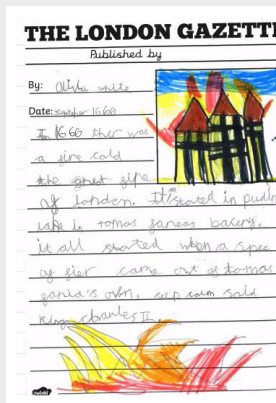 THE LONDON GAZETTE
Published by
By: Olivia white
Date: September 1666
In 1666 ther was
a fire cald
the great fire
of london. It started in puding
lane in tomas farenas bacery.
it all started when a spec
of fier came out of tomas
faria's ovn. cep carm said
King charles II
twinkl